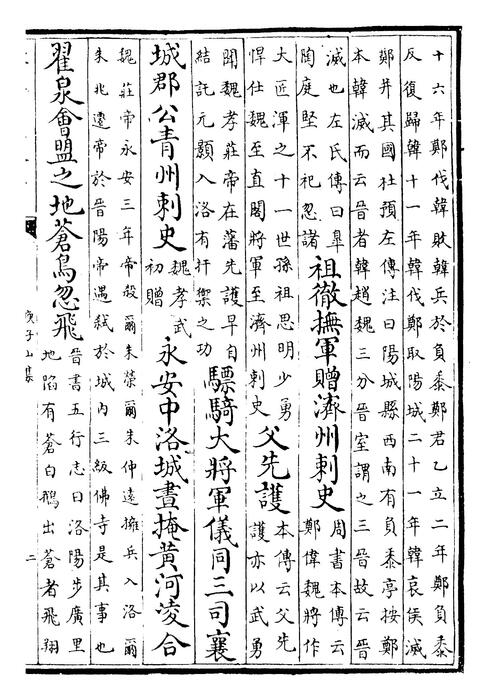 十六年鄭伐韓敗韓兵於負黍鄭君乙立二年鄭負黍
反復歸韓十一年韓伐鄭取陽城二十一年韓哀侯滅
鄭并其國杜預左傳注曰陽城縣西南有負黍亭按鄭
本韓滅而云晉者韓趙魏三分晉室謂之三晉故云晉
滅也左氏傳曰臯
陶庭堅不祀忽諸
祖徹撫軍贈濟州刺史
周書本傳云
鄭偉魏將作
大匠渾之十一世孫祖思明少勇
悍仕魏至直閣將軍至濟州刺史
父先護
本傳云父先
護亦以武勇
聞魏孝莊帝在藩先護早自
結託元顥入洛有扞禦之功
驃騎大將軍儀同三司襄
城郡公青州刺史
魏孝武
初贈
永安中洛城晝掩黃河凌合
魏莊帝永安三年帝殺爾朱榮爾朱仲遠擁兵入洛爾
朱兆遷帝於晉陽帝遇弒於城內三級佛寺是其事也
翟泉會盟之地蒼鳥忽飛
晉書五行志曰洛陽步廣里
地陷有蒼白鵝出蒼者飛翔
庾子山集
二